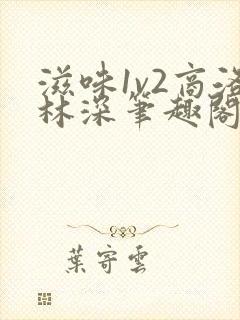 滋味1v2高洛
林深笔趣阁
葉寄雲